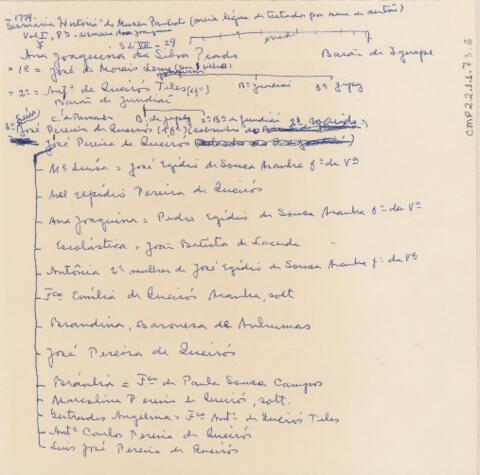 - 1779 -
"História" do Museu Paulista
Vol I, 83.
Ana Joaquina da Silva Prado Barão de Iguape
= 1º = José de Morais
= 2º = Antº de Queiros Teles Bº Jundiaí Bº Japy
Barão de Jundiaí
C. de Parnaíba B. de Japy 2º Bº de Jundiaí
3º José Pereira de Queiros
José Pereira de Queiros
Mª Luísa = José Egídio de Sousa Aranha fº da Vª
Elpídio Pereira de Queirós
Ana Joaquina = Pedro Egídio de Sousa Aranha fº da Vª
Escolástica = João Batista de Lacerda
Antônia 2ª mulher de José Egídio de Sousa Aranha fº da Vª
Fca Emília de Queirós Aranha, solt
Brandina, Baronesa de Anhumas
José Pereira de Queirós
Brasília = Fco de Paula Sousa Campos
Marcolina Pereira de Queirós, solt.
Gertrudes Angelina = Fco Antº de Queirós Teles
Antº Carlos Pereira de Queirós
Luís José Pereira de Queirós
CMP2.2.1.1.73.6